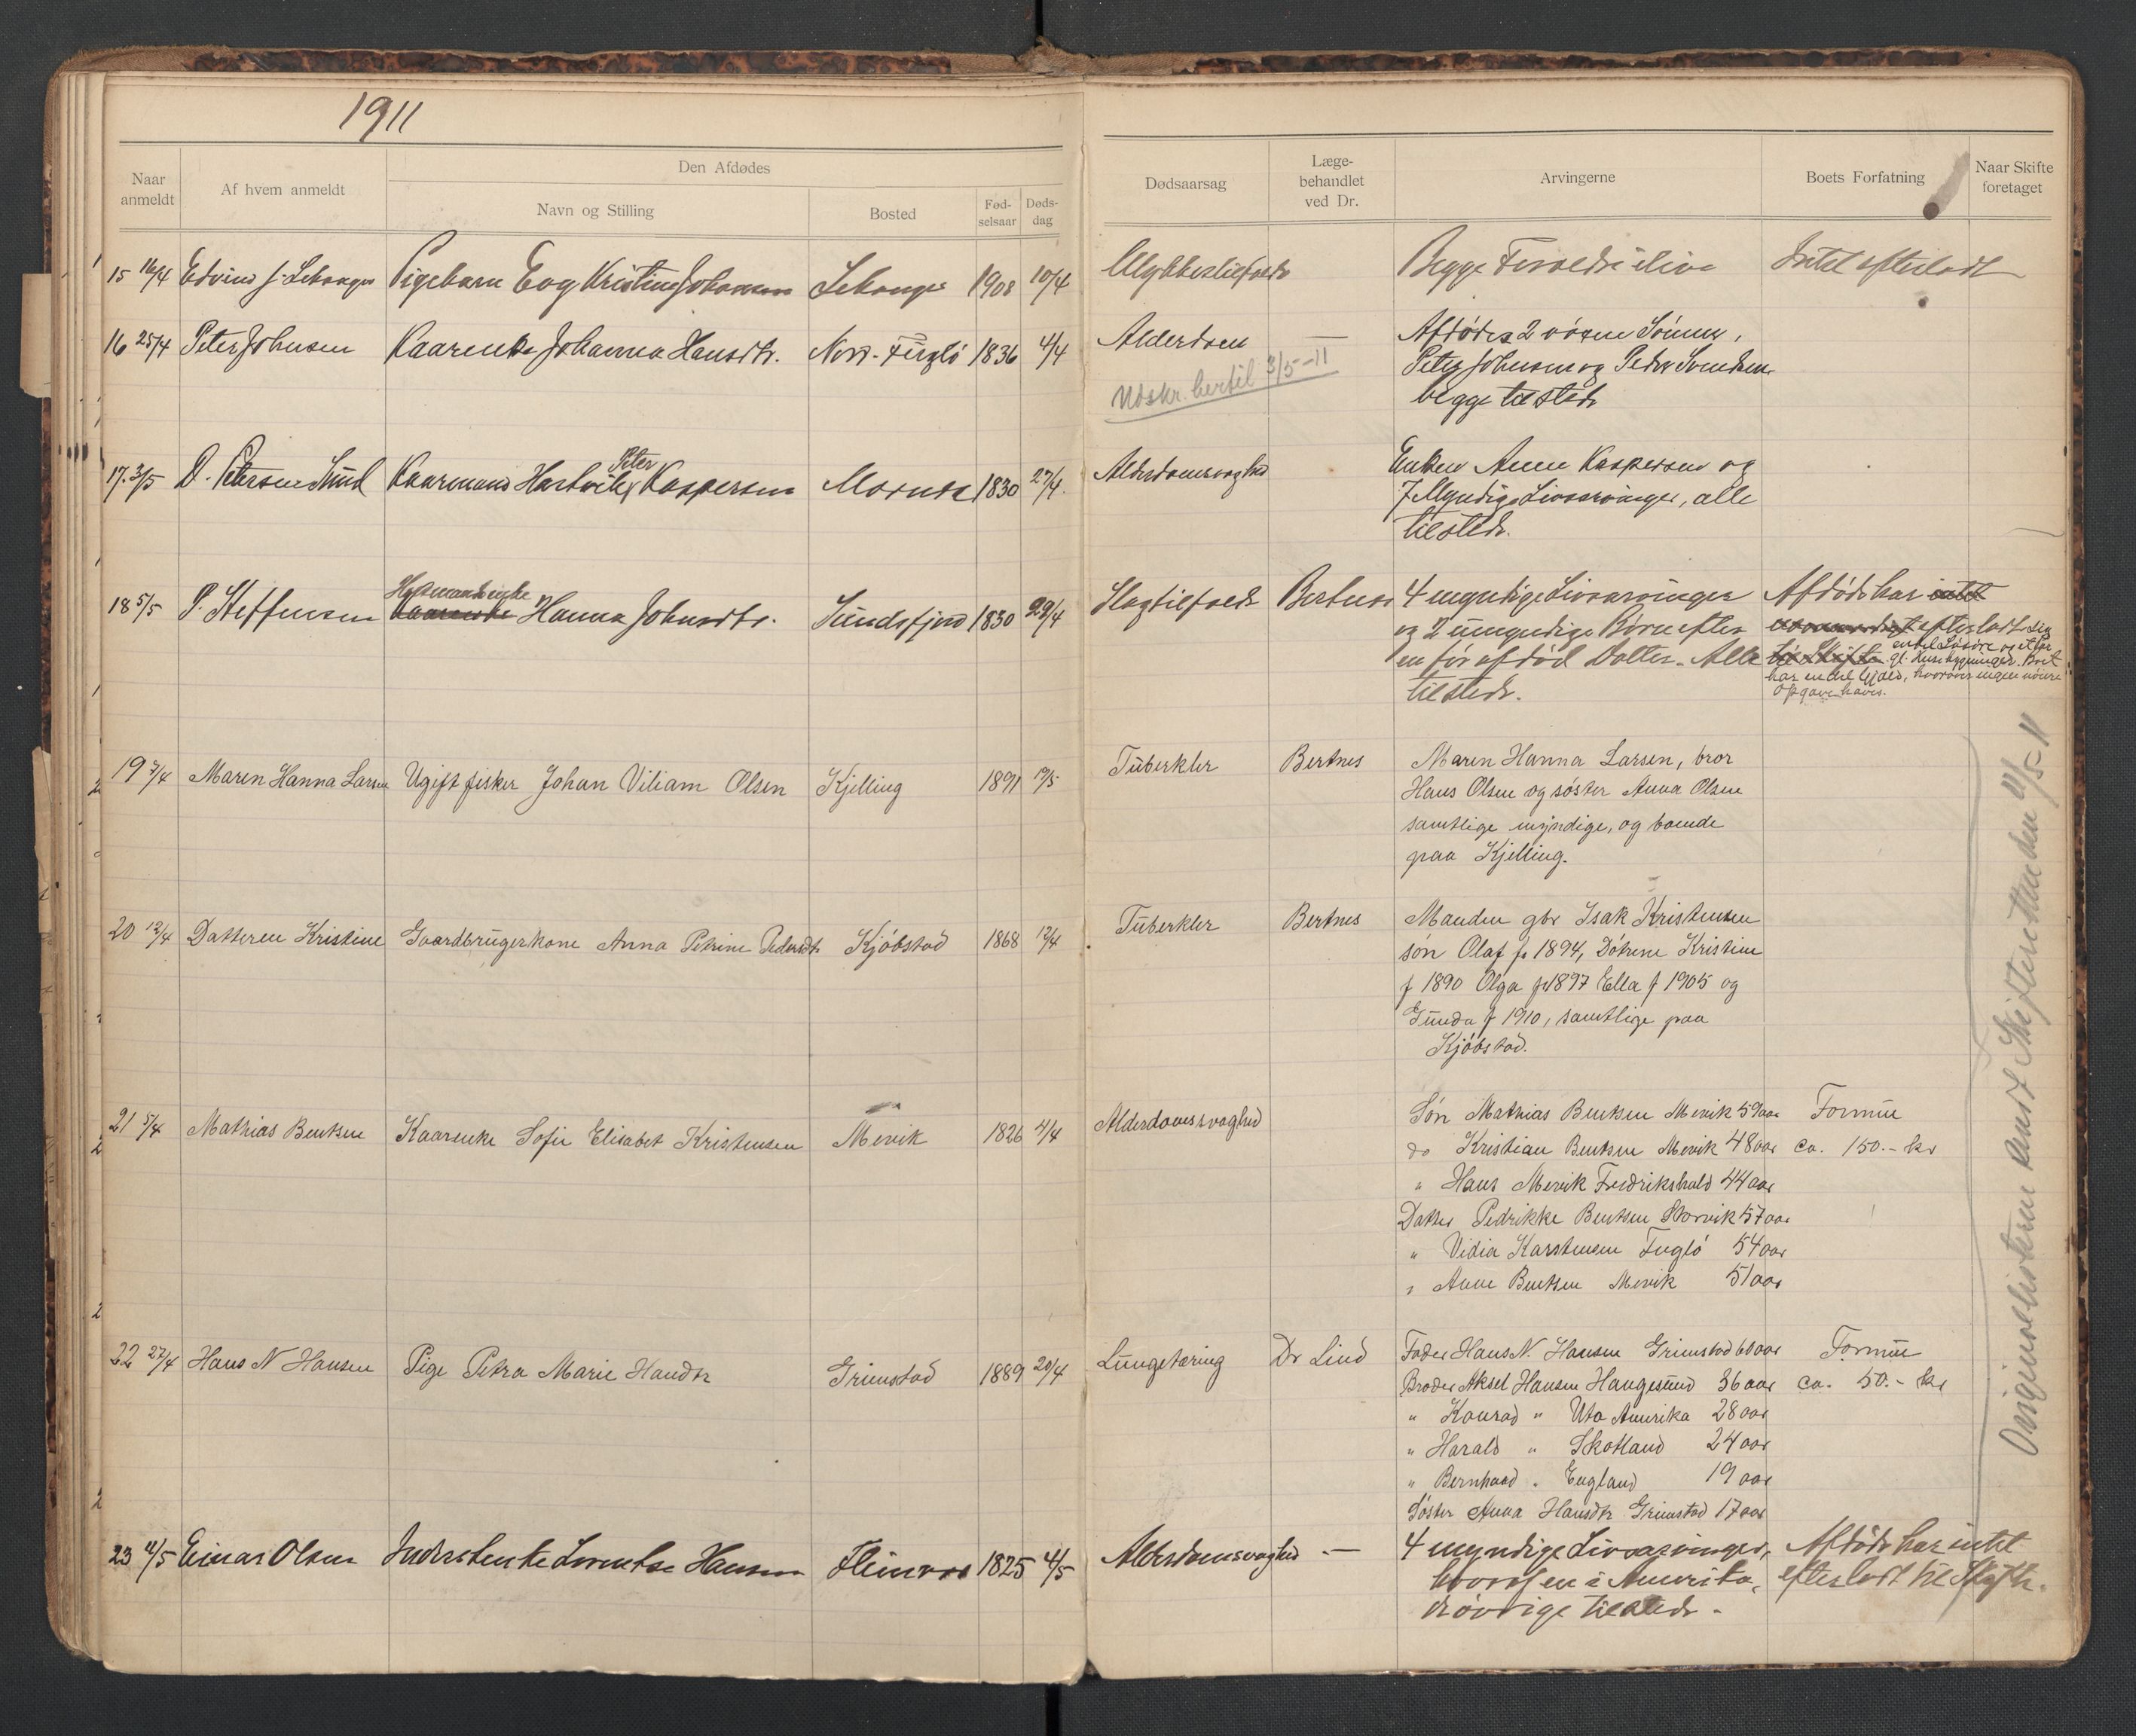 1911
Naar anmeldt
Af hvem anmeldt
Den Afdødes
Navn og Stilling
Bosted
Fød-selsaar
Døds-dag
Dødsaarsag
Læge-behandlet ved Dr.
Arvingerne
Boets Forfatning
Naar Skifte foretaget
15 16/4 Edvin J. Selvaager Pigebarn Kristine Johansen 1908 10/4 Ulykkestilfælde Begge Forældre ilive Intet efterladt
16 25/4 Peter Johnsen Kaarenke Johanna Hansdtr. Nord-Fugló 1836 4/4 Alderdom — Afdødes 2 vóxne Sónner,
Udskr. hertil 3/5-11
Peter Johnsen og Peder Svendsen
begge tilstede
17. 3/5 D. Petersen Sund Kaarmand Hartvik Peter Kaspersen Mornes 1830 27/4. Alderdomssvaghed Enken Anne Kaspersen og
7 Myndige Livsarvinger, alle
tilstede.
18 5/5 P. Steffensen Husmandsenke Kaarenke Hanna Johnsdtr. Sundsfjord 1830 29/4 Slagtilfælde Bertnes 4 myndige Livsarvinger Afdóde har intet
og 2 umyndige Børn efter efterladt sig
en før afdód Datter. Alle til Skifte endel Lósóre og et Par gl. Husebygninger. Boet
tilstede. har endel Gjæld, hvorover ingen nóiere
Opgave haves.
19 7/4 Maren Hanna Larsen Ugift fisker Johan Viliam Olsen Kjelling 1891 Tüberkler Bertnes Maren Hanna Larsen, bror
Hans Olsen og sóster Anna Olsen
samtlige myndige, og boende
paa Kjelling.
20 12/4 Datteren Kristine Gaardbrügerkone Anna Petrine Pedersdtr Kjóbstad 1868 12/4 Tüberkler Bertnes Manden gbr Isak Kristensen
són Olaf f. 1894, Dótrene Kristine
f 1890 Olga f 1897 Ella f 1905 og
Günda f 1910, samtlige paa
Kjóbstad.
21 5/4 Mathias Bentsen Kaarenke Sofie Elisabet Kristensen Mevik 1826 4/4 Alderdomssvaghed Són Mathias Bentsen Mevik 59 aar Formüe
do Kristian Bentsen Mevik 48 aar ca. 150.- kr
" Hans Mevik Fredrikshald 44 aar
Datter Pedrikke Bentsen Storvik 57 aar
" Vidia Karstensen Fugló 54 aar
" Anne Bentsen Mevik 51 aar
22 27/4 Hans N Hansen Pige Petra Marie Hansdtr Grimstad 1889 20/4 Lüngetæring Dr Lind Fader Hans N. Hansen Grimstad 60 aar Formüe
Broder Aksel Hansen Haugesund 36 aar ca. 50.- kr
" Konrad " Uta Amerika 28 aar
" Harald " Skotland 24 aar
" Bernhard " England 19 aar
Sóster Anna Hansdtr Grimstad 17 aar
23 11/5 Einar Olsen Inderstenke Lorentse Hansen Fleinvær 1825 4/5 Alderdomssvaghed — 4 myndige Livsarvinger, Afdóde har intet
hvoraf en i Amerika, efterladt til Skifte.
de óvrige tilstede.
Originallisten sendt Skifteretten den 11/5-11